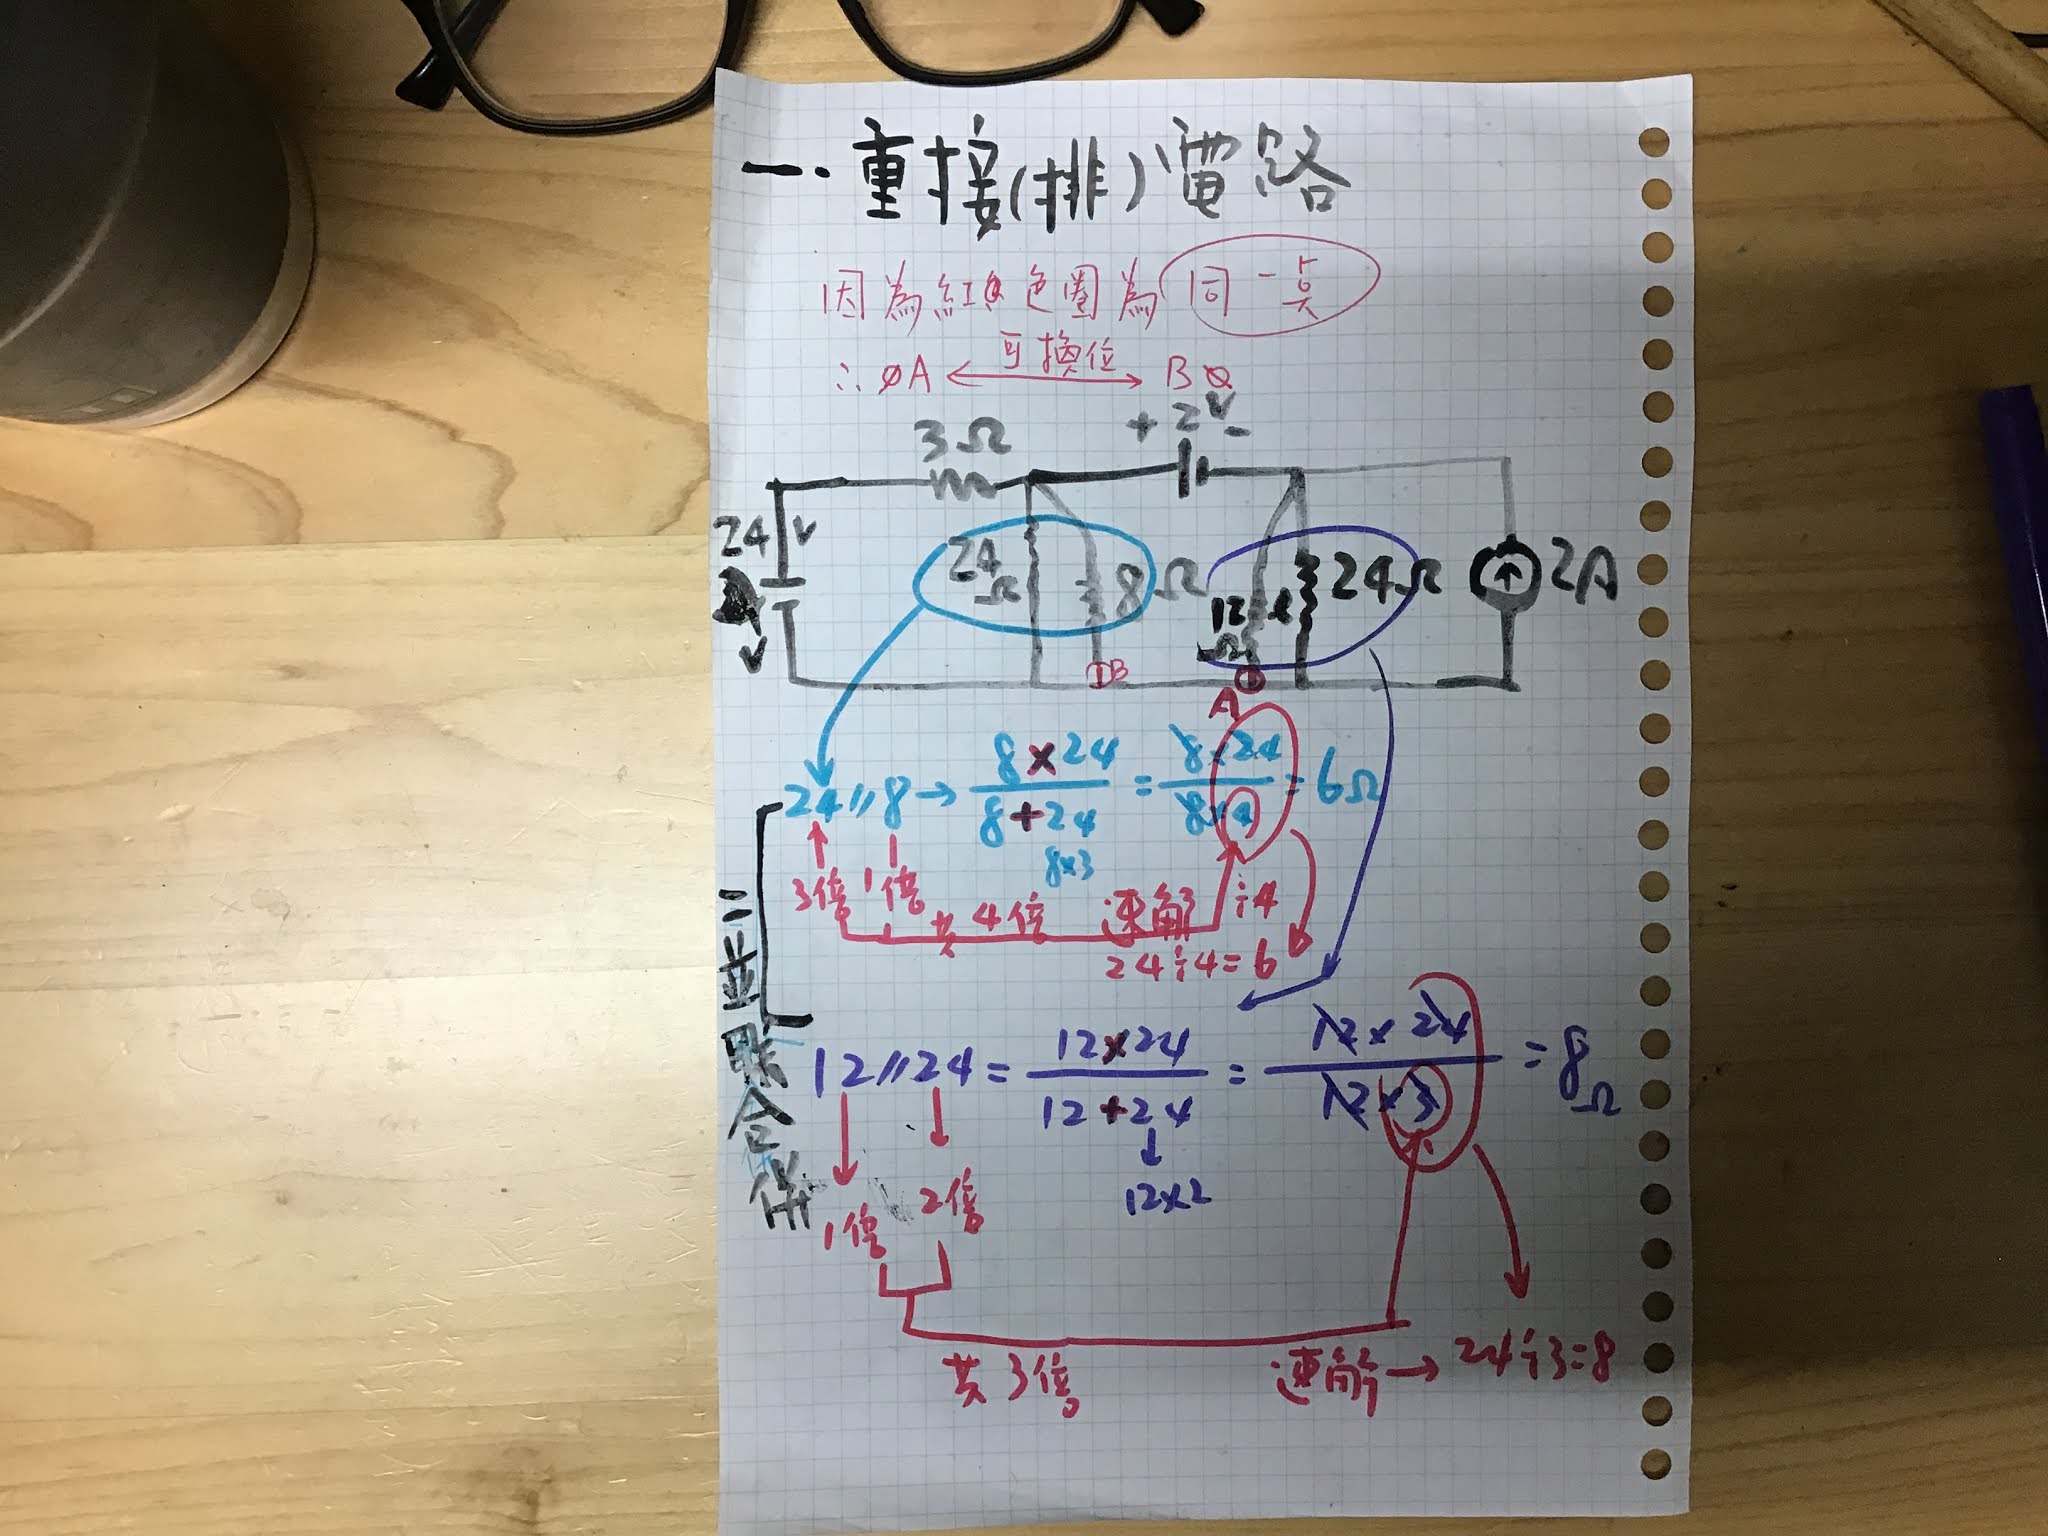 一.重接(排)電路
因為紅色圈為同一點
∴ A ⟷ B
可換位
3Ω
+ 2V -
24V
24Ω
8Ω
12Ω
24Ω
2A
B
A
24//8 → 8×24/8+24 = 8×24/8×4 = 6Ω
8×3
3倍 1倍
共4倍 速解 ÷4
24÷4=6
二.並聯合併
12//24 = 12×24/12+24 = 12×24/12×3 = 8Ω
12×2
1倍 2倍
共3倍 速解→ 24÷3=8